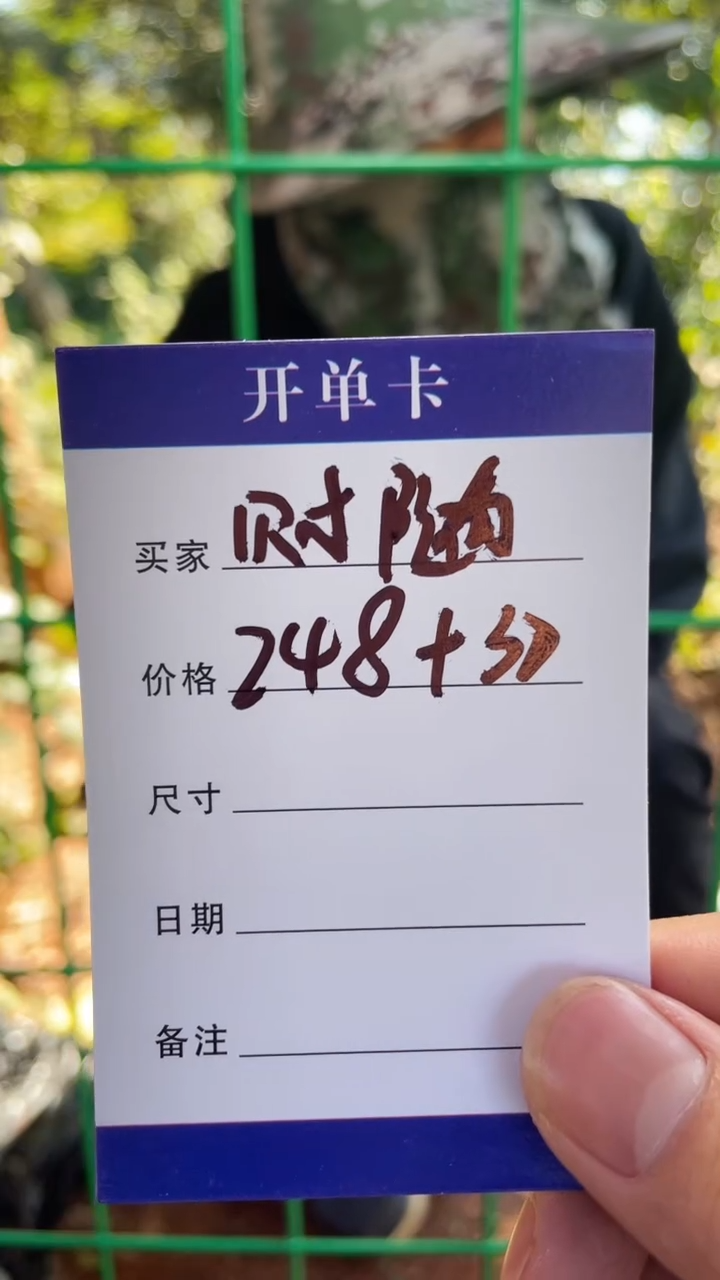 开单卡
买家 财随
价格 248+分
尺寸
日期
备注